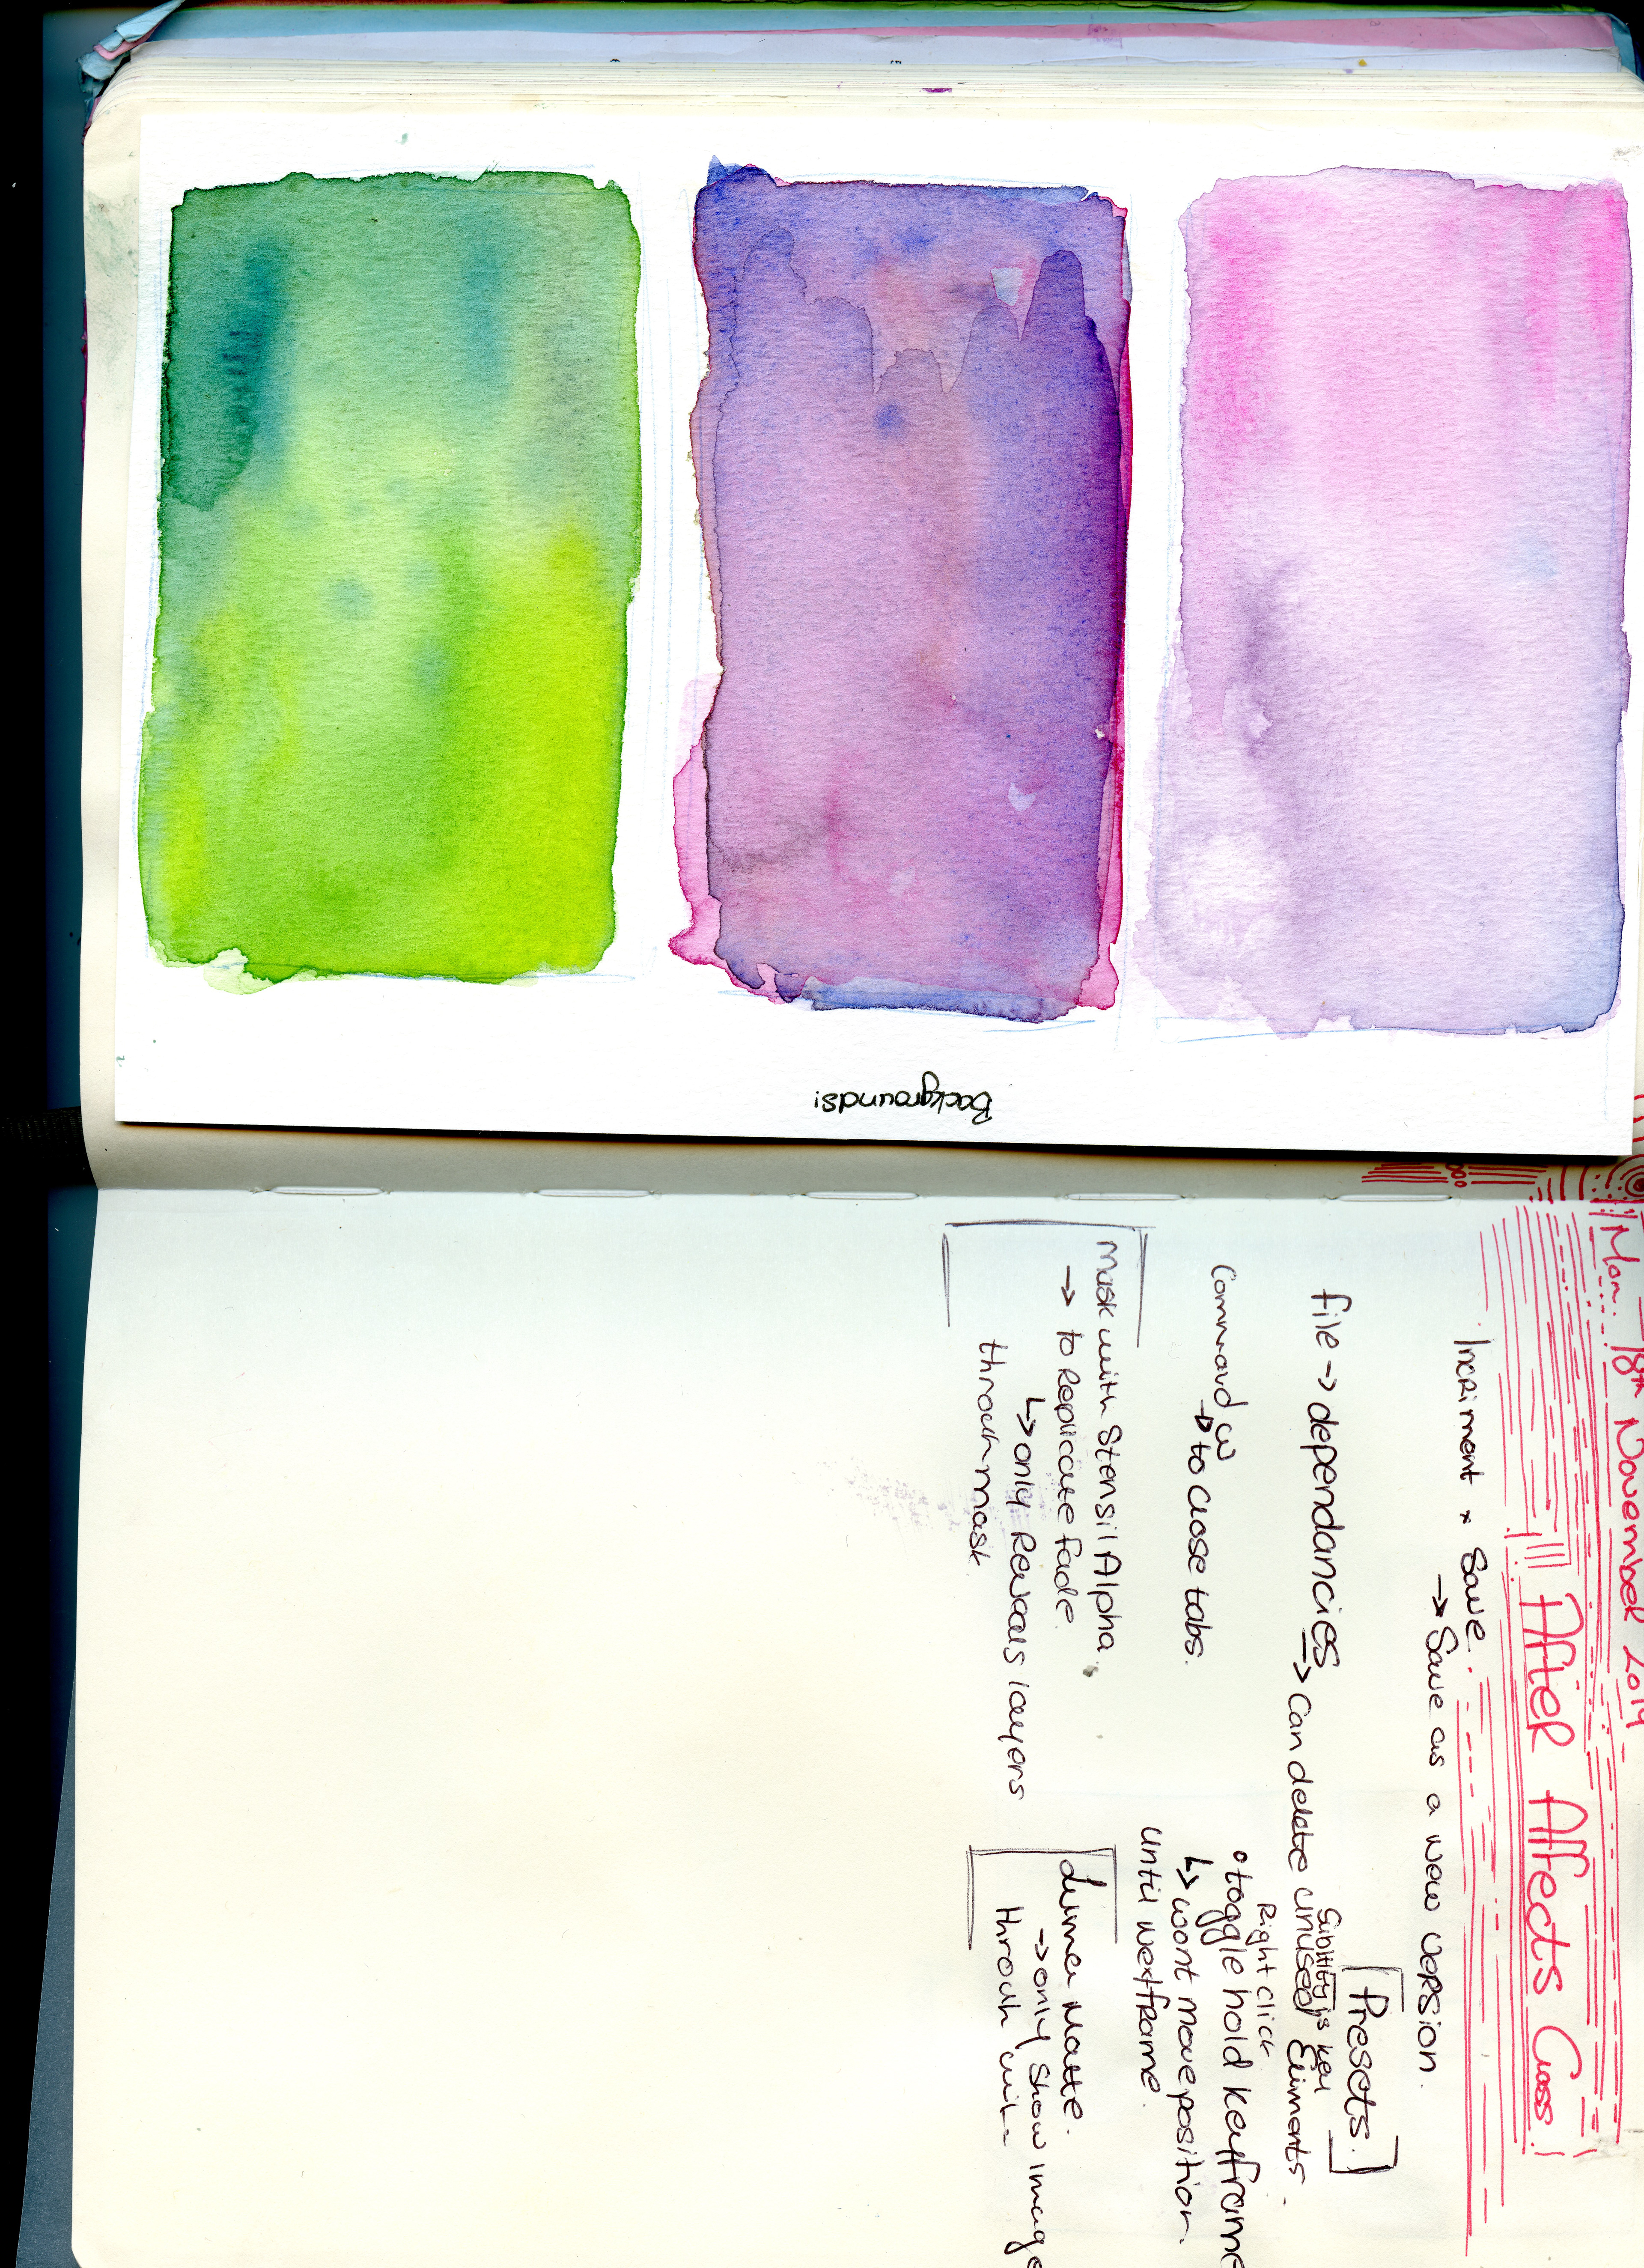 Backgrounds:
Mon 18th November 2019
After Affects Class!
Incriment + Save.
→ Save as a new version.
file → dependancies → can delete unused Eliments.
Command W
→ to close tabs.
Mask with Stensil Alpha.
→ to Replicate fade.
↳ only Reveals layers
throuh mask.
[Presets.]
is key
Right click
• toggle hold keyframe
↳ wont move position
until next frame.
Luma Matte.
→ only show image
throuh